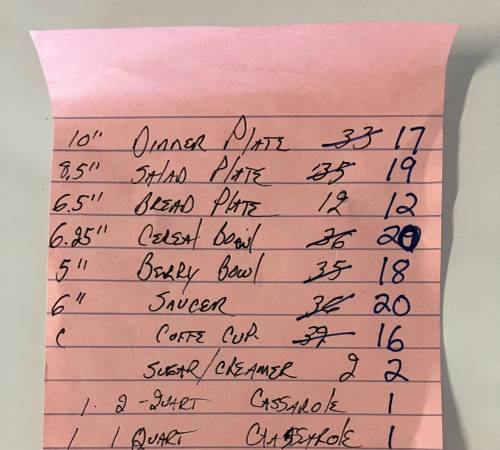 10" DINNER PLATE 33 17
8.5" SALAD PLATE 35 19
6.5" BREAD PLATE 12 12
6.25" CEREAL BOWL 36 20
5" BERRY BOWL 35 18
6" SAUCER 36 20
C COFFE CUP 39 16
SUGAR/CREAMER 2 2
1. 2-QUART CASSAROLE 1
1 1 QUART CASSAROLE 1